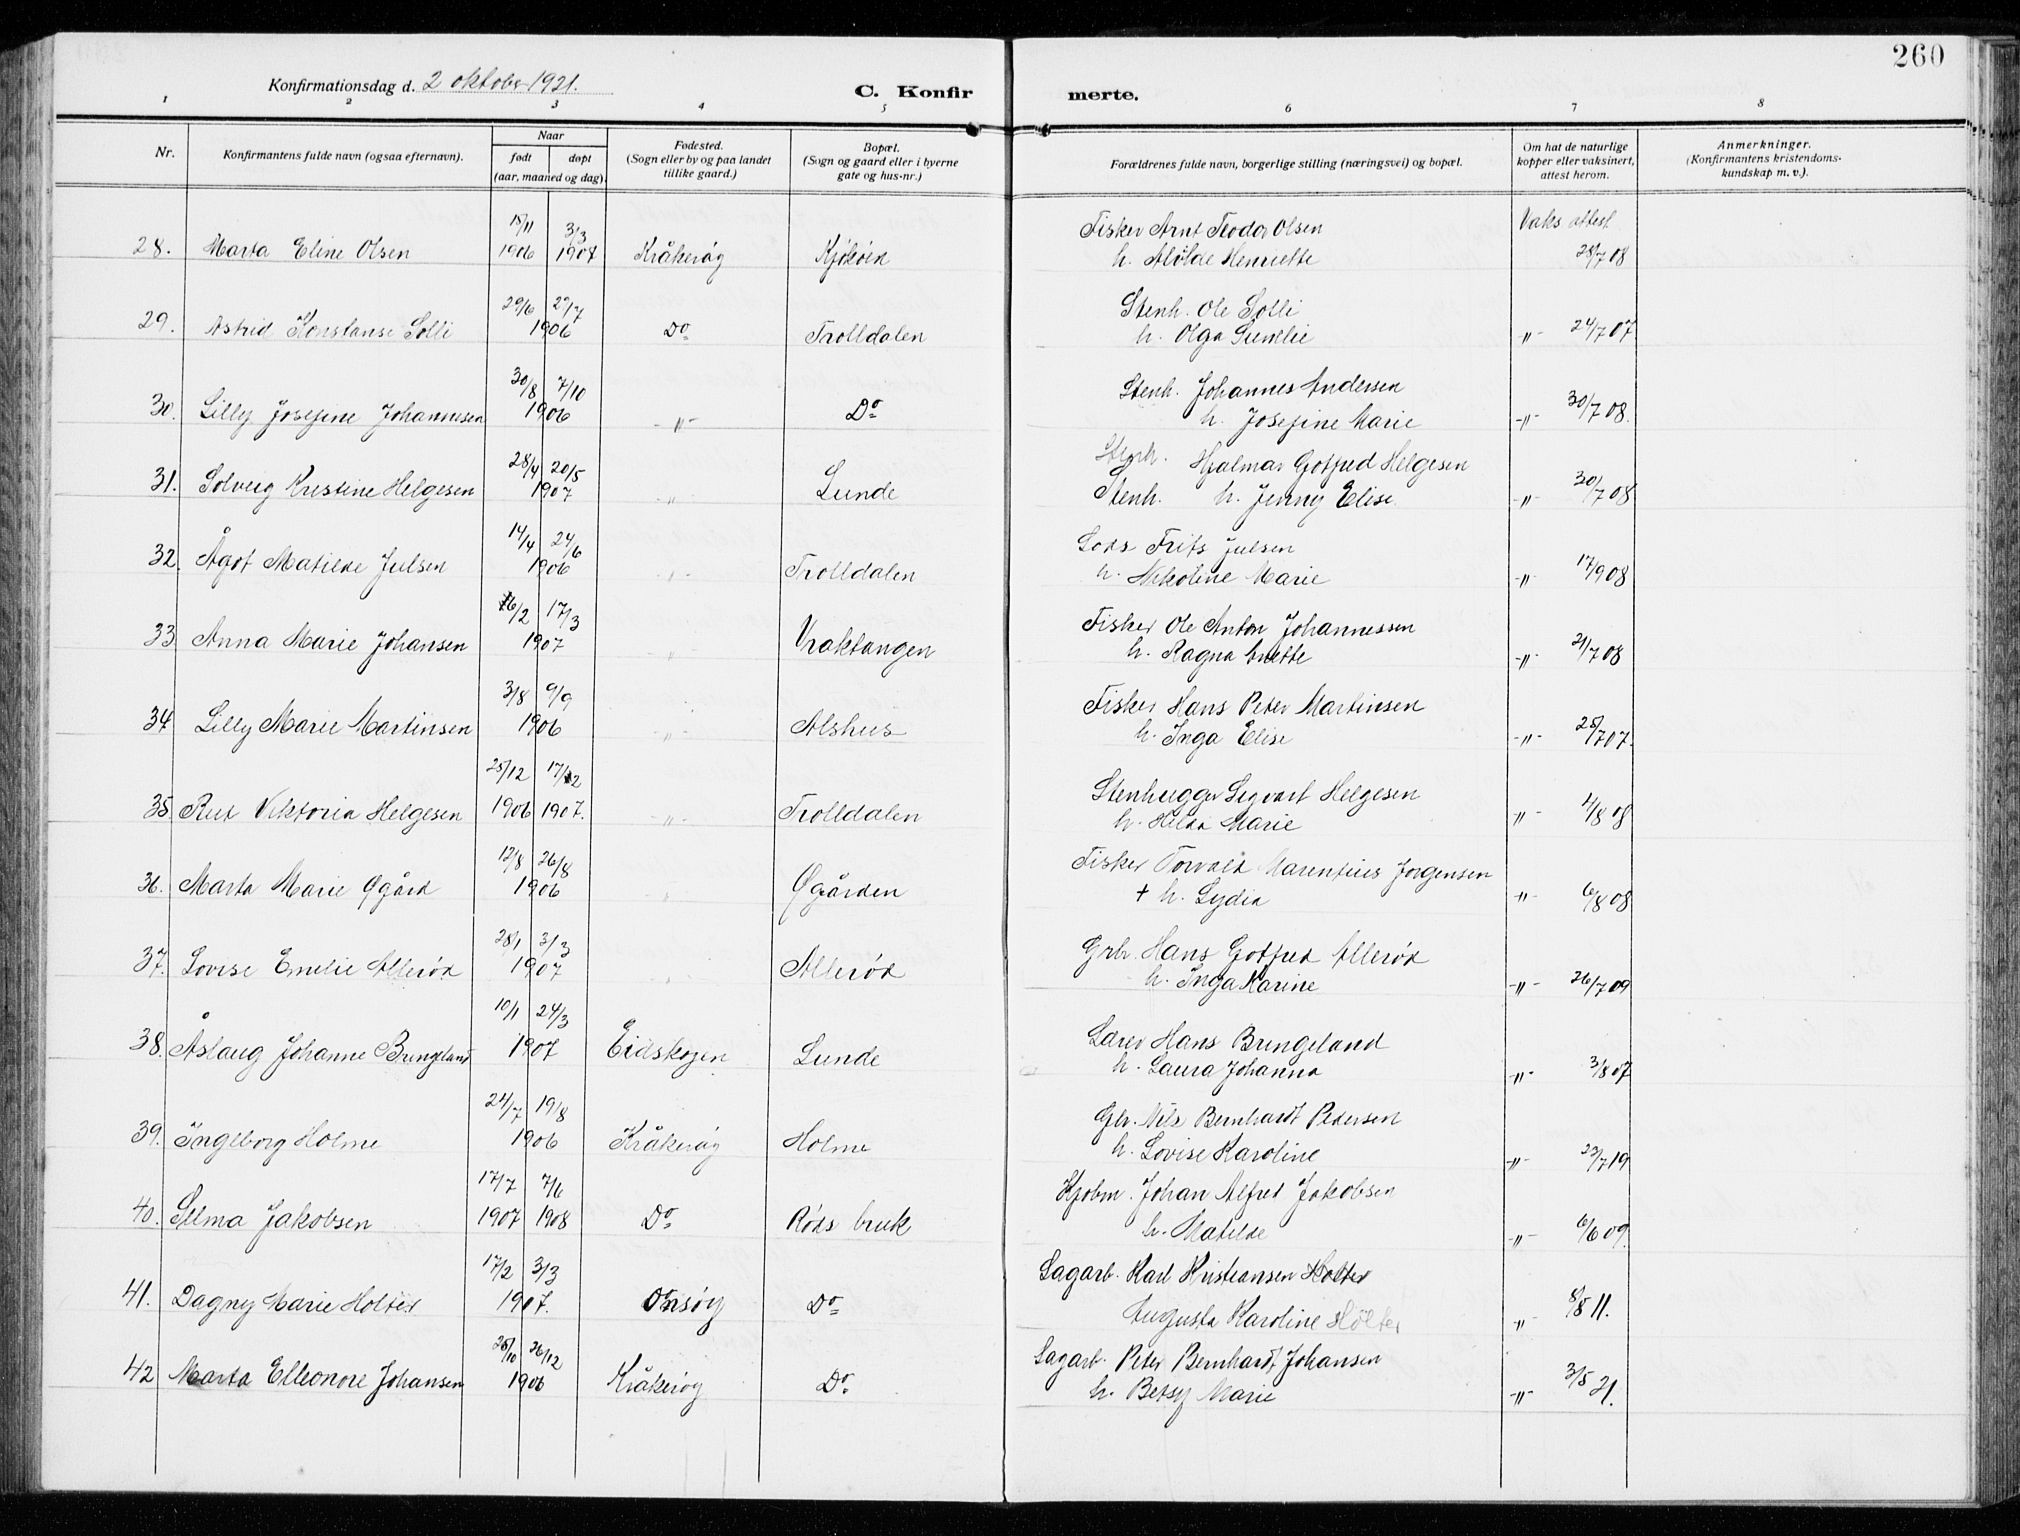 260
Konfirmationsdag d. 2 oktober 1921.
C. Konfirmerte.
1 2 3 4 5 6 7 8
Nr.
Konfirmantens fulde navn (ogsaa efternavn).
Naar
født døpt
(aar, maaned og dag).
Fødested.
(Sogn eller by og paa landet
tillike gaard.)
Bopæl.
(Sogn og gaard eller i byerne
gate og hus-nr.)
Forældrenes fulde navn, borgerlige stilling (næringsvei) og bopæl.
Om hat de naturlige
kopper eller vaksinert,
attest herom.
Anmerkninger.
(Konfirmantens kristendoms-
kundskap m. v.).
15/11 3/3 Fisker Arnt Teodor Olsen Vaks attest
28. Marta Eline Olsen 1906 1907 Kråkerøy Kjøkøen h. Alvilde Henriette 28/7 08
29/6 29/7 Stenh. Ole Solli
29. Astrid Konstanse Solli 1906 Do Trolldalen h. Olga Gunelie " 24/7 07
30/8 7/10 Stenh. Johannes Andersen
30. Lilly Josefine Johannesen 1906 " Do h. Josefine Marie " 30/7 08.
28/4 20/5 Stenh. Hjalmar Gotfred Helgesen
31. Solveig Kristine Helgesen 1907 " Lunde Stenh. h. Jenny Elise " 30/7 08
14/4 24/6 Lods Frits Julsen
32. Ågot Matilde Julsen 1906 " Trolldalen h. Nikoline Marie " 17/9 08
16/2 17/3 Fisker Ole Anton Johannessen
33 Anna Marie Johansen 1907 " Vraktangen h. Ragna Anette " 21/7 08
3/8 9/9 Fisker Hans Peter Martinsen
34 Lilly Marie Martinsen 1906 " Alshus h. Inga Elise " 25/7 07.
25/12 17/2 Stenhugger Sigvart Helgesen
35. Rut Viktoria Helgesen 1906 1907. " Trolldalen h. Hilda Marie " 4/8 08
12/8 26/8 Fisker Torvald Marentius Jørgensen
36. Marta Marie Øgård 1906 " Øgården + h. Lydia " 6/8 08
28/1 3/3 Grbr. Hans Gotfred Allerød
37. Lovise Emelie Allerød 1907 " Allerød h. Inga Karine " 26/7 09
10/1 24/3 Lærer Hans Bringeland
38. Åslaug Johanne Bringeland 1907 Eidskogen Lunde h. Laura Johanna " 3/8 07
24/7 19/8 Gbr. Nils Bernhardt Pedersen
39. Ingeborg Holme 1906 Kråkerøy Holme h. Lovise Karoline " 23/7 19
17/7 7/6 Kjøbm. Johan Alfred Jakobsen
40. Selma Jakobsen 1907 1908 Do Røds bruk h. Matilde " 6/6 09.
17/2 3/3 Sagarb. Karl Kristiansen Holter
41. Dagny Marie Holter 1907. Onsøy Do Augusta Karoline Holter " 8/8 11.
25/10 26/12 Sagarb. Peter Bernhardt Johansen
42 Marta Elleonore Johansen 1906 Kråkerøy Do h. Betsy Marie " 3/5 21.